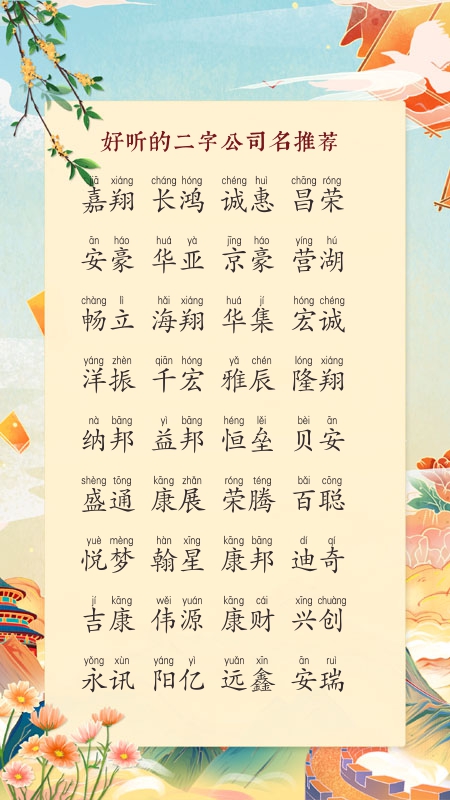 好听的二字公司名推荐
jiā xiáng cháng hóng chéng huì chāng róng
嘉翔 长鸿 诚惠 昌荣
ān háo huá yà jīng háo yíng hú
安豪 华亚 京豪 营湖
chàng lì hǎi xiáng huá jí hóng chéng
畅立 海翔 华集 宏诚
yáng zhèn qiān hóng yǎ chén lóng xiáng
洋振 千宏 雅辰 隆翔
nà bāng yì bāng héng lěi bèi ān
纳邦 益邦 恒垒 贝安
shèng tōng kāng zhǎn róng téng bǎi cōng
盛通 康展 荣腾 百聪
yuè mèng hàn xīng kāng bāng dí qí
悦梦 翰星 康邦 迪奇
jí kāng wěi yuán kāng cái xīng chuàng
吉康 伟源 康财 兴创
yǒng xùn yáng yì yuǎn xīn ān ruì
永讯 阳亿 远鑫 安瑞